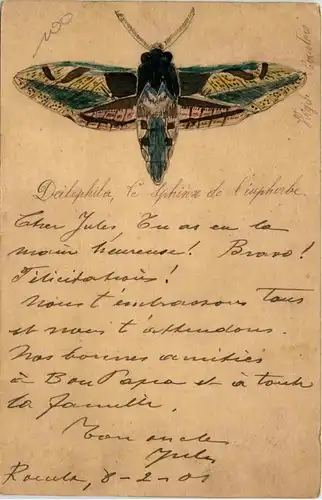 Deilephila, le Sphinx de l'euphorbe.
Cher Jules, Tu as eu la
main heureuse! Bravo!
Félicitations!
Nous t'embrassons tous
et nous t'attendons.
Nos bonnes amitiés
à Bon Papa et à toute
la famille.
Ton oncle
Jules
8-2-01